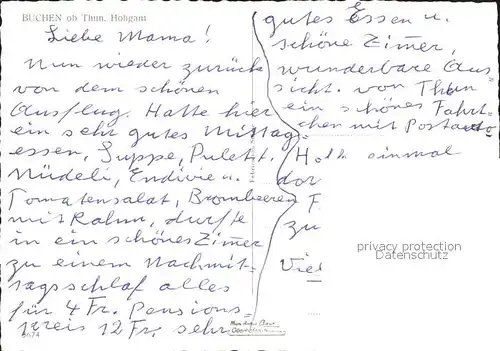 BUCHEN ob Thun, Hohgant
Liebe Mama!
Nun wieder zurück
von dem schönen
Ausflug. Hatte hier
ein sehr gutes Mittag-
essen, Suppe, Pulett.
Nüdeli, Endivie u.
Tomatensalat, Brombeeren
mit Rahm, durfte
in ein schönes Zimer
zu einem Nachmit-
tagsschlaf alles
für 4 Fr. Pensions-
preis 12 Fr. sehr
gutes Essen u.
schöne Zimer,
wunderbare Aus-
sicht. von Thun
ein schönes Fahrt-
chen mit Postauto
einmal
zu
Viel
privacy protection
www.ansichtskarten-center.de